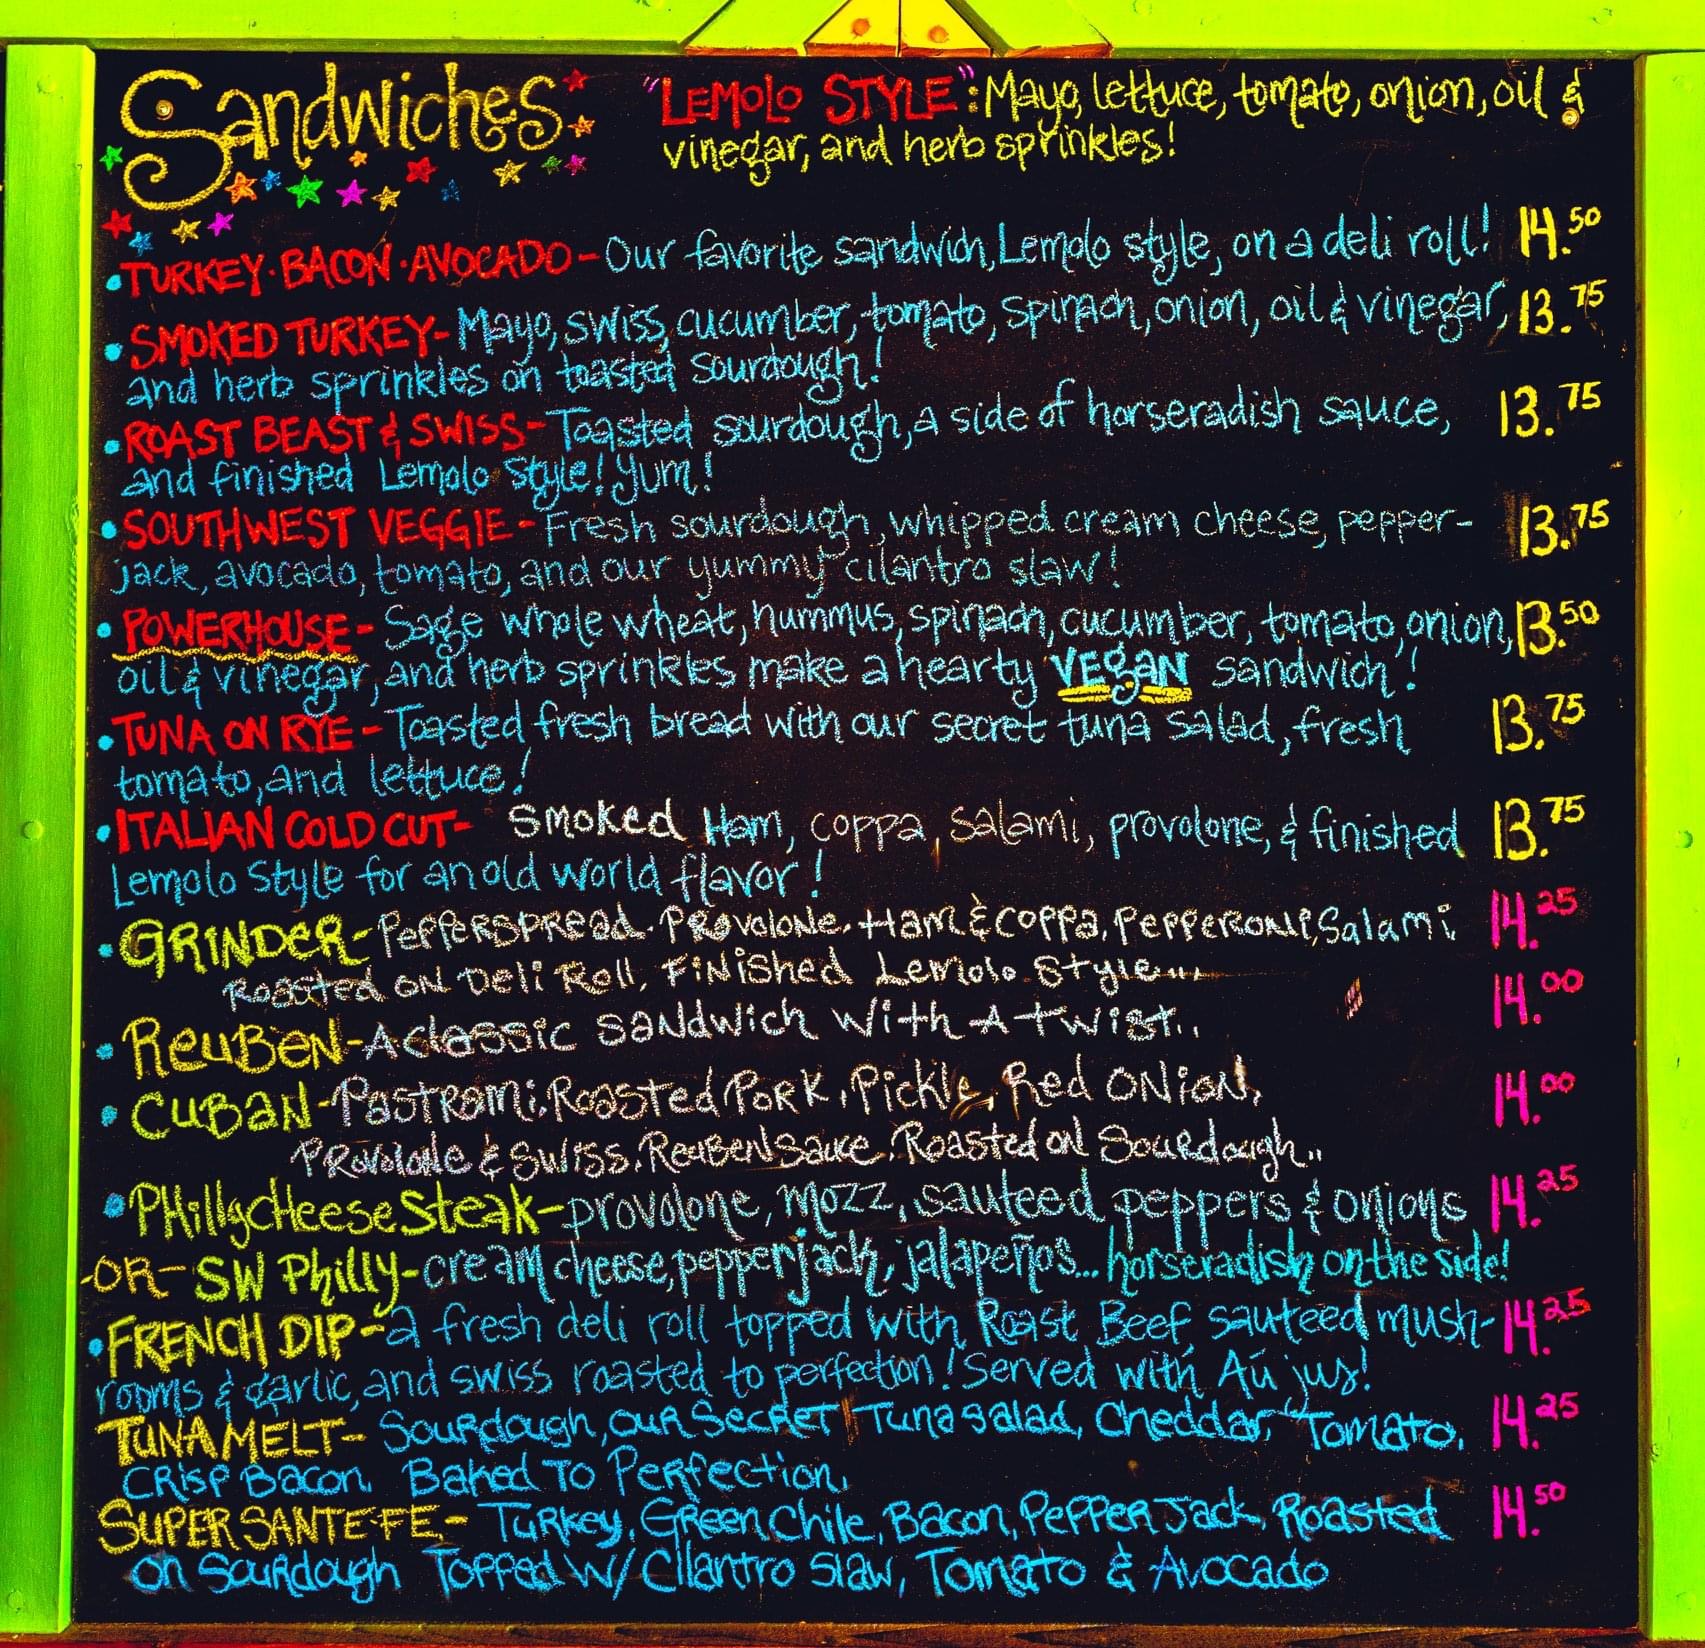 Sandwiches
"LEMOLO STYLE": Mayo, lettuce, tomato, onion, oil &
vinegar, and herb sprinkles!
• TURKEY·BACON·AVOCADO - Our favorite sandwich, Lemolo style, on a deli roll! 14.50
• SMOKED TURKEY - Mayo, swiss, cucumber, tomato, spinach, onion, oil & vinegar, 13.75
and herb sprinkles on toasted sourdough!
• ROAST BEAST & SWISS - Toasted sourdough, a side of horseradish sauce, 13.75
and finished Lemolo Style! Yum!
• SOUTHWEST VEGGIE - Fresh sourdough, whipped cream cheese, pepper- 13.75
jack, avocado, tomato, and our yummy cilantro slaw!
• POWERHOUSE - Sage whole wheat, hummus, spinach, cucumber, tomato, onion, 13.50
oil & vinegar, and herb sprinkles make a hearty VEGAN sandwich!
• TUNA ON RYE - Toasted fresh bread with our secret tuna salad, fresh 13.75
tomato, and lettuce!
• ITALIAN COLD CUT - Smoked Ham, coppa, Salami, provolone, & finished 13.75
Lemolo Style for an old world flavor!
• GRINDER - PEPPERSPREAD. PROVOLONE. Ham & COPPA, PEPPERONI, Salami 14.25
Roasted ON Deli Roll, FINISHED Lemolo Style...
• REUBEN - A classic SANDWICH With A twist.. 14.00
• CUBAN - PASTRAMI, ROASTED PORK, PICKLE, Red ONION, 14.00
PROVOLONE & SWISS, REUBEN SAUCE, Roasted on SOURDOUGH..
• PHilly CHeese STeak - provolone, mozz, sauteed peppers & onions 14.25
-OR- SW PHilly - cream cheese, pepperjack, jalapeños... horseradish on the side!
• FRENCH DIP - a fresh deli roll topped with Roast Beef, sauteed mush- 14.25
rooms & garlic, and swiss roasted to perfection! Served with Aú jus!
TUNA MELT - Sourdough, our Secret Tuna salad, Cheddar, Tomato, 14.25
CRISP Bacon, Baked To Perfection.
SUPER SANTE FE - TURKEY, GREEN Chile, Bacon, PEPPER Jack, Roasted 14.50
on Sourdough Topped W/ Cilantro Slaw, Tomato & Avocado